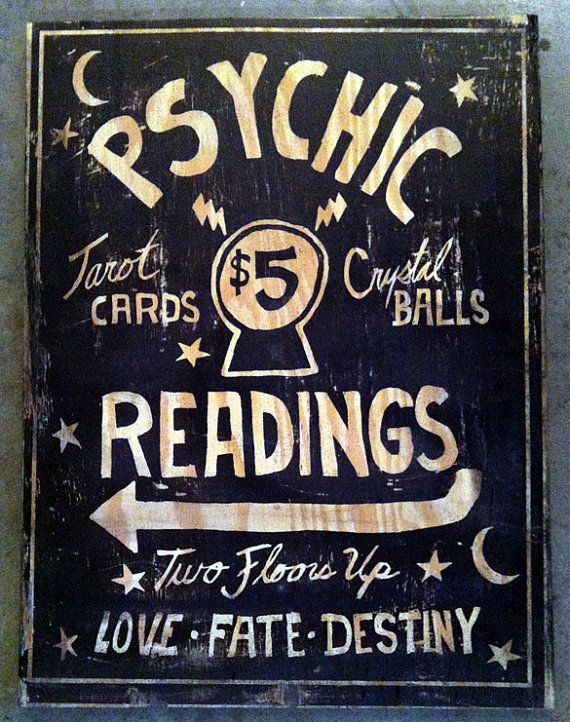 PSYCHIC
Tarot
CARDS
$5
Crystal
BALLS
READINGS
Two Floors Up
LOVE · FATE · DESTINY